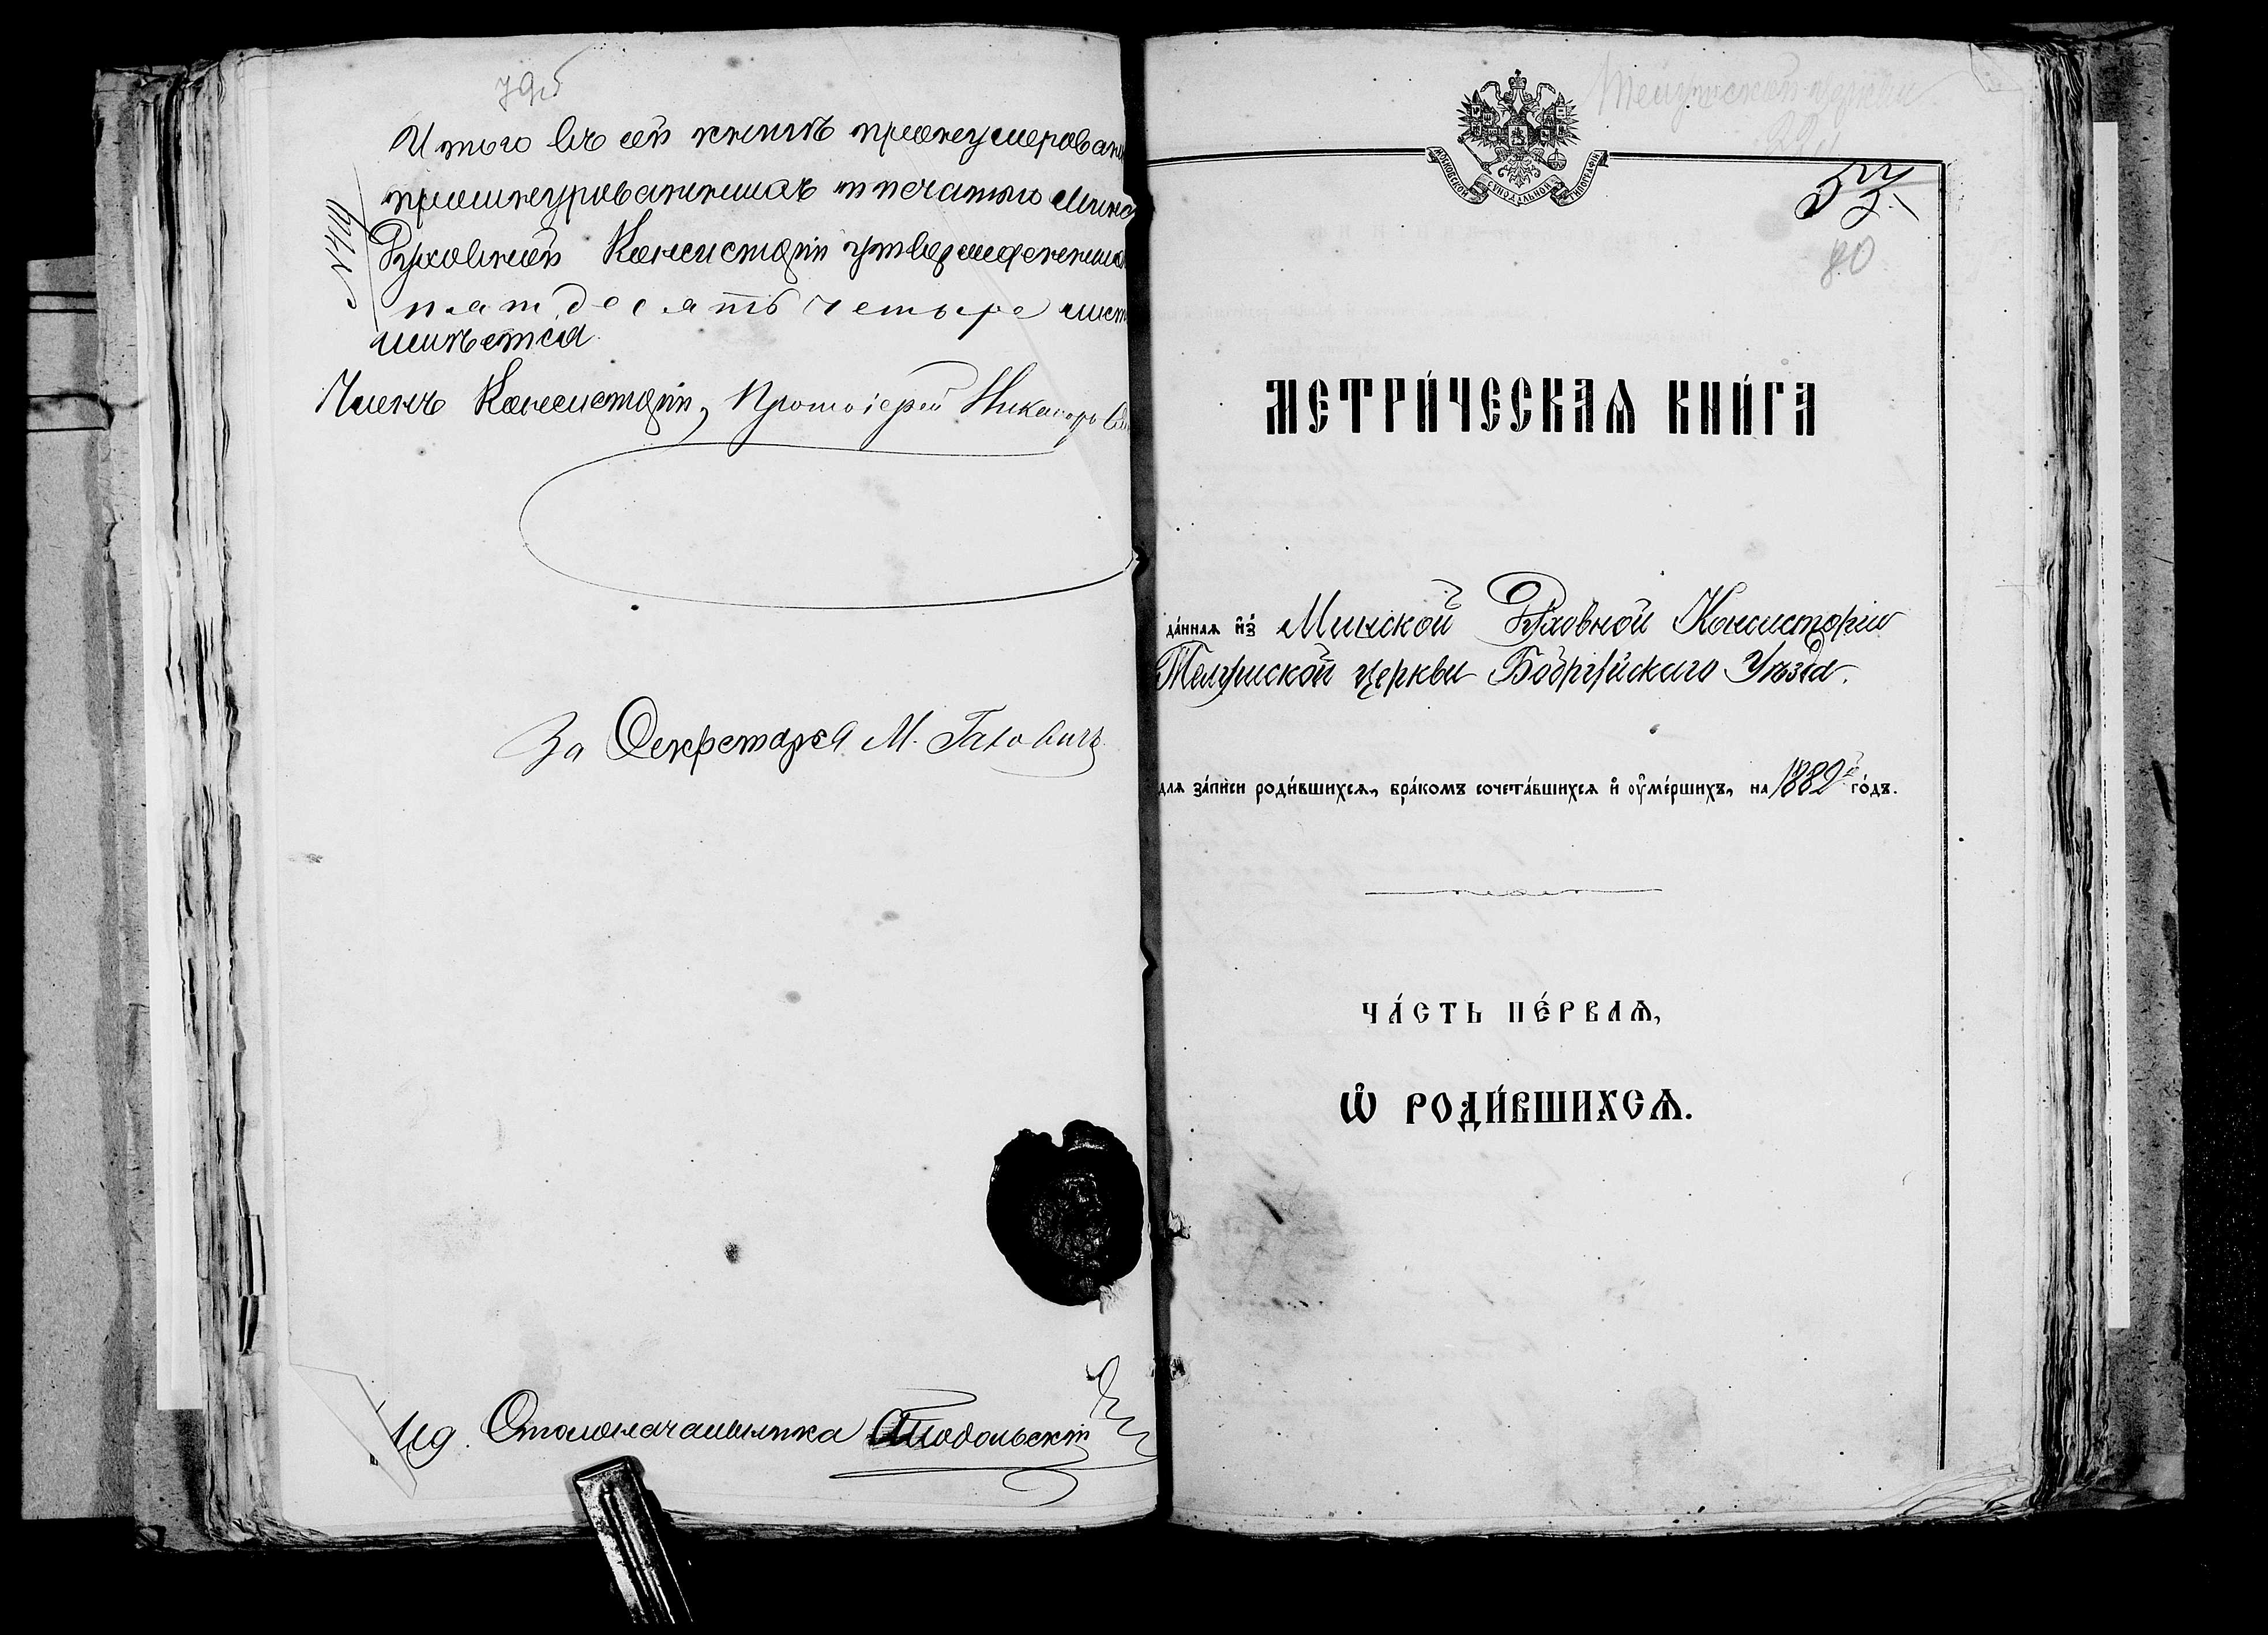 79об
Итого въ сей книгѣ пронумерован
прошнурованныхъ и печатью Минс
Духовной Консисторіи утвержденныхъ
пятдесятъ четыре лист
имѣется
Членъ Консисторіи, Протоіерей Никаноръ
За Секретаря М.
Ид. Столоначальника Подольскій
МОСКОВСКОЙ СѴНОДАЛЬНОЙ ТИПОГРАФІИ
80
МЕТРИ́ЧЕСКАѦ КНИ́ГА
да́ннаѧ и҆з̾ Минской Духовной Консисторіи
Телушской церкви Бобруйскаго Уѣзда.
для за́писи роди́вшихсѧ, бра́комъ сочета́вшихсѧ и҆ оу҆ме́ршихъ, на 1882й го́дъ.
ЧА́СТЬ ПЕ́РВАѦ,
Ѡ҆ РОДИ́ВШИХСѦ.